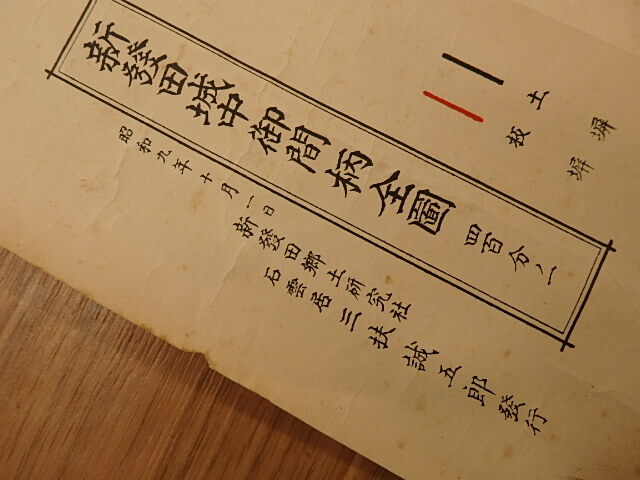 土塀
板塀
新發田城中御間柄全圖 四百分ノ一
昭和九年十月一日
新發田郷土研究社
石雲居三扶誠五郎發行